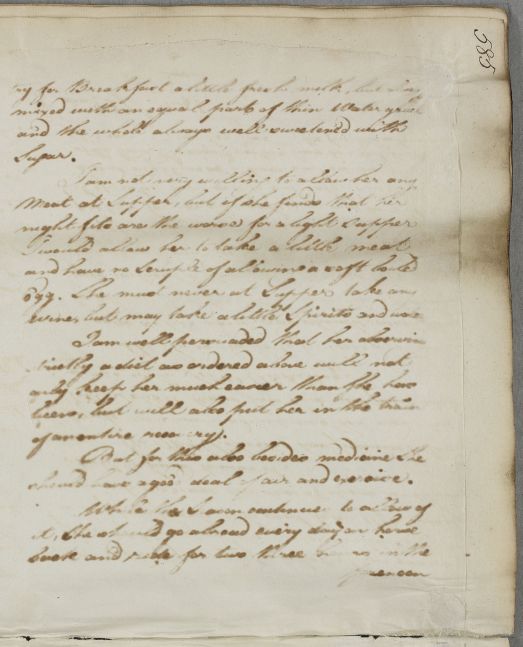 585
for Breakfast a little fresh milk, but
mixed with an equal part of thin Water gruel
and the whole always well sweetened with
Sugar.
I am not very willing to allow her any
Meat at Supper, but if she finds that her
night fits are the worse for a light Supper
I would allow her to take a little meat
and have no Scruple of allowing a soft boild
egg. She must never at Supper take any
wine, but may take a little Spirits and water
I am well perswaded that her observing
strictly a diet as ordered above will not
only keep her much easier than she has
been, but will also put her in the train
of an entire recovery.
But for this also besides medicine She
should have a good deal of air and exercise.
While the Season continues to allow of
it, She should go abroad every day on horse
back and ride for two three hours in the
forenoon